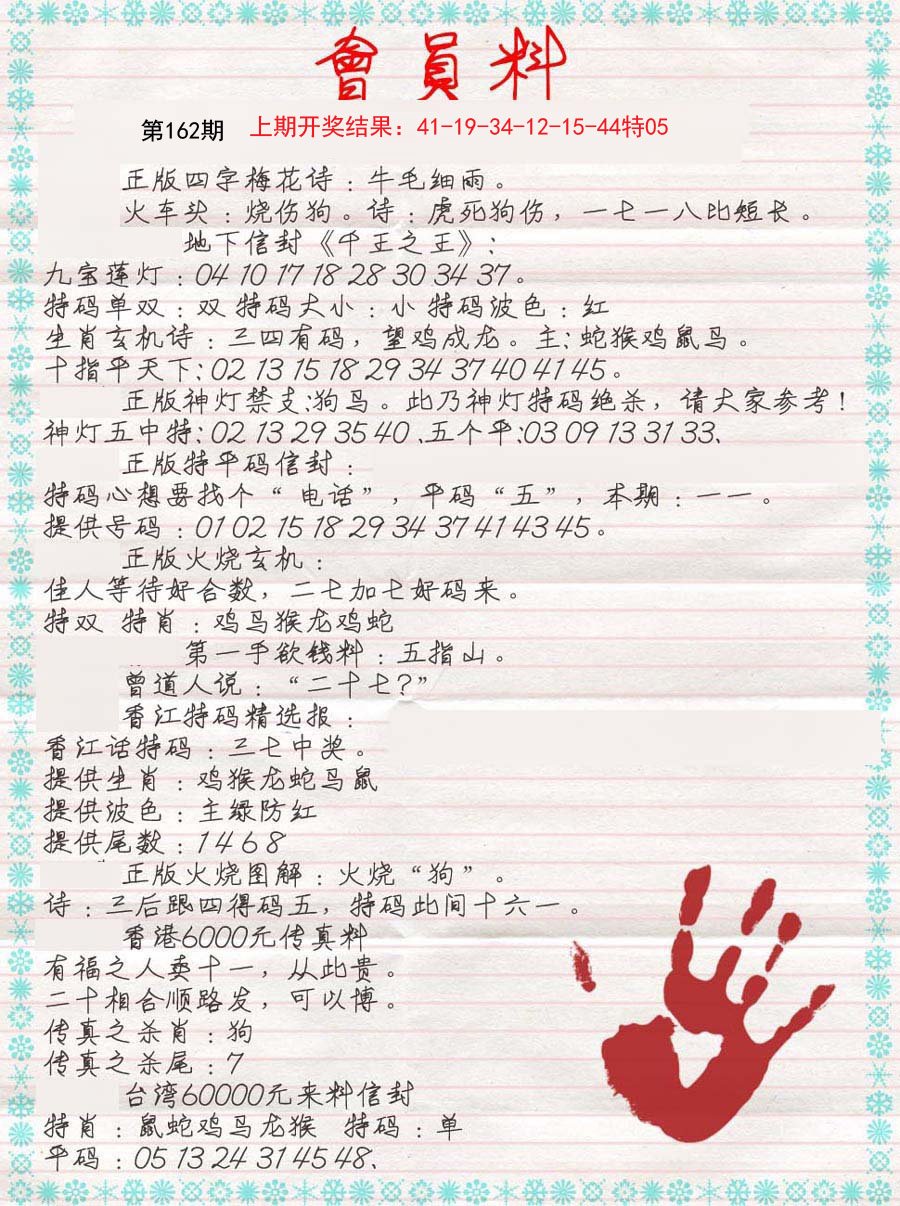 會員料
第162期 上期开奖结果：41-19-34-12-15-44特05
正版四字梅花诗：牛毛细雨。
火车头：烧伤狗。诗：虎死狗伤，一七一八比短长。
地下信封《千王之王》：
九宝莲灯：04 10 17 18 28 30 34 37。
特码单双：双 特码大小：小 特码波色：红
生肖玄机诗：三四有码，望鸡成龙。主：蛇猴鸡鼠马。
十指平天下：02 13 15 18 29 34 37 40 41 45。
正版神灯禁支：狗马。此乃神灯特码绝杀，请大家参考！
神灯五中特：02 13 29 35 40、五个平：03 09 13 31 33、
正版特平码信封：
特码心想要找个“电话”，平码“五”，本期：一一。
提供号码：01 02 15 18 29 34 37 41 43 45。
正版火烧玄机：
佳人等待好合数，二七加七好码来。
特双 特肖：鸡马猴龙鸡蛇
第一手欲钱料：五指山。
曾道人说：“二十七？”
香江特码精选报：
香江话特码：三七中奖。
提供生肖：鸡猴龙蛇马鼠
提供波色：主绿防红
提供尾数：1 4 6 8
正版火烧图解：火烧“狗”。
诗：三后跟四得码五，特码此间十六一。
香港6000元传真料
有福之人卖十一，从此贵。
二十相合顺路发，可以博。
传真之杀肖：狗
传真之杀尾：7
台湾60000元来料信封
特肖：鼠蛇鸡马龙猴 特码：单
平码：05 13 24 31 45 48、